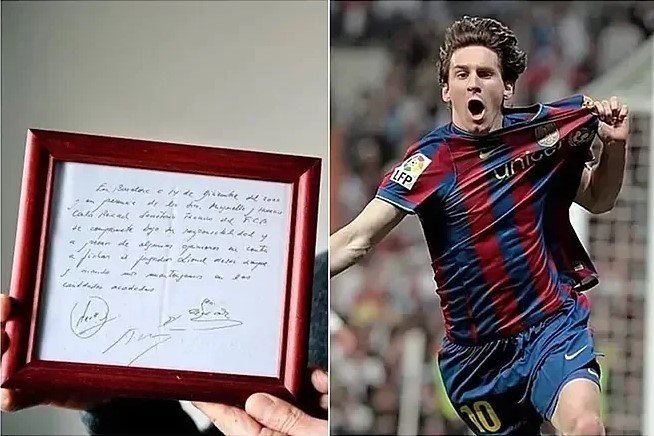 En Barcelona a 14 de diciembre del 2000
y en presencia de los Sres. Minguella y Horacio
Carles Rexach Secretario Técnico del F.C.B
se compromete bajo su responsabilidad y
a pesar de algunas opiniones en contra
a fichar al jugador Lionel Messi siempre
y cuando nos mantengamos en las
cantidades acordadas
LFP
unicef
10